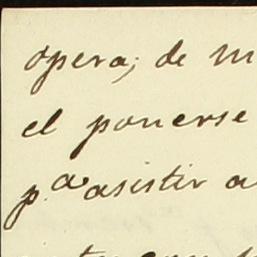 opera; de m
el ponerse
p.a asistir a